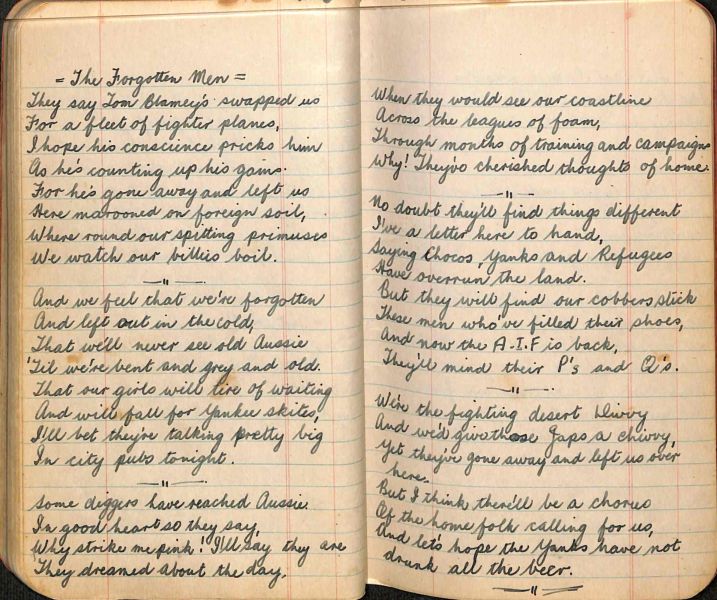 = The Forgotten Men =
They say Tom Blamey's swapped us
For a fleet of fighter planes,
I hope his conscience pricks him
As he's counting up his gains.
For he's gone away and left us
Here marooned on foreign soil,
Where round our spitting primuses
We watch our billies boil.
—"—
And we feel that we're forgotten
And left out in the cold,
That we'll never see old Aussie
'Til we're bent and grey and old.
That our girls will tire of waiting
And will fall for Yankee skites,
I'll bet they're talking pretty big
In city pubs tonight.
—"—
Some diggers have reached Aussie.
In good heart so they say,
Why strike me pink! I'll say they are
They dreamed about the day,
When they would see our coastline
Across the leagues of foam,
Through months of training and campaigns
Why! They've cherished thoughts of home.
—"—
No doubt they'll find things different
I've a letter here to hand,
Saying Chocos Yanks and Refugees
Have overrun the land.
But they will find our cobbers stick
These men who've filled their shoes,
And now the A.I.F is back,
They'll mind their P's and Q's.
—"—
We're the fighting desert Divvy
And we'd give those Japs a chivvy,
Yet they've gone away and left us over
here.
But I think there'll be a chorus
Of the home folk calling for us,
And let's hope the Yanks have not
drunk all the beer.
—"—